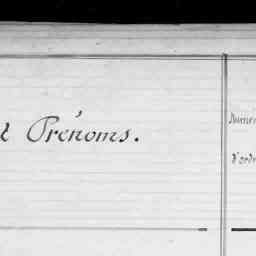 Prénoms.
Numéro
d'ordre